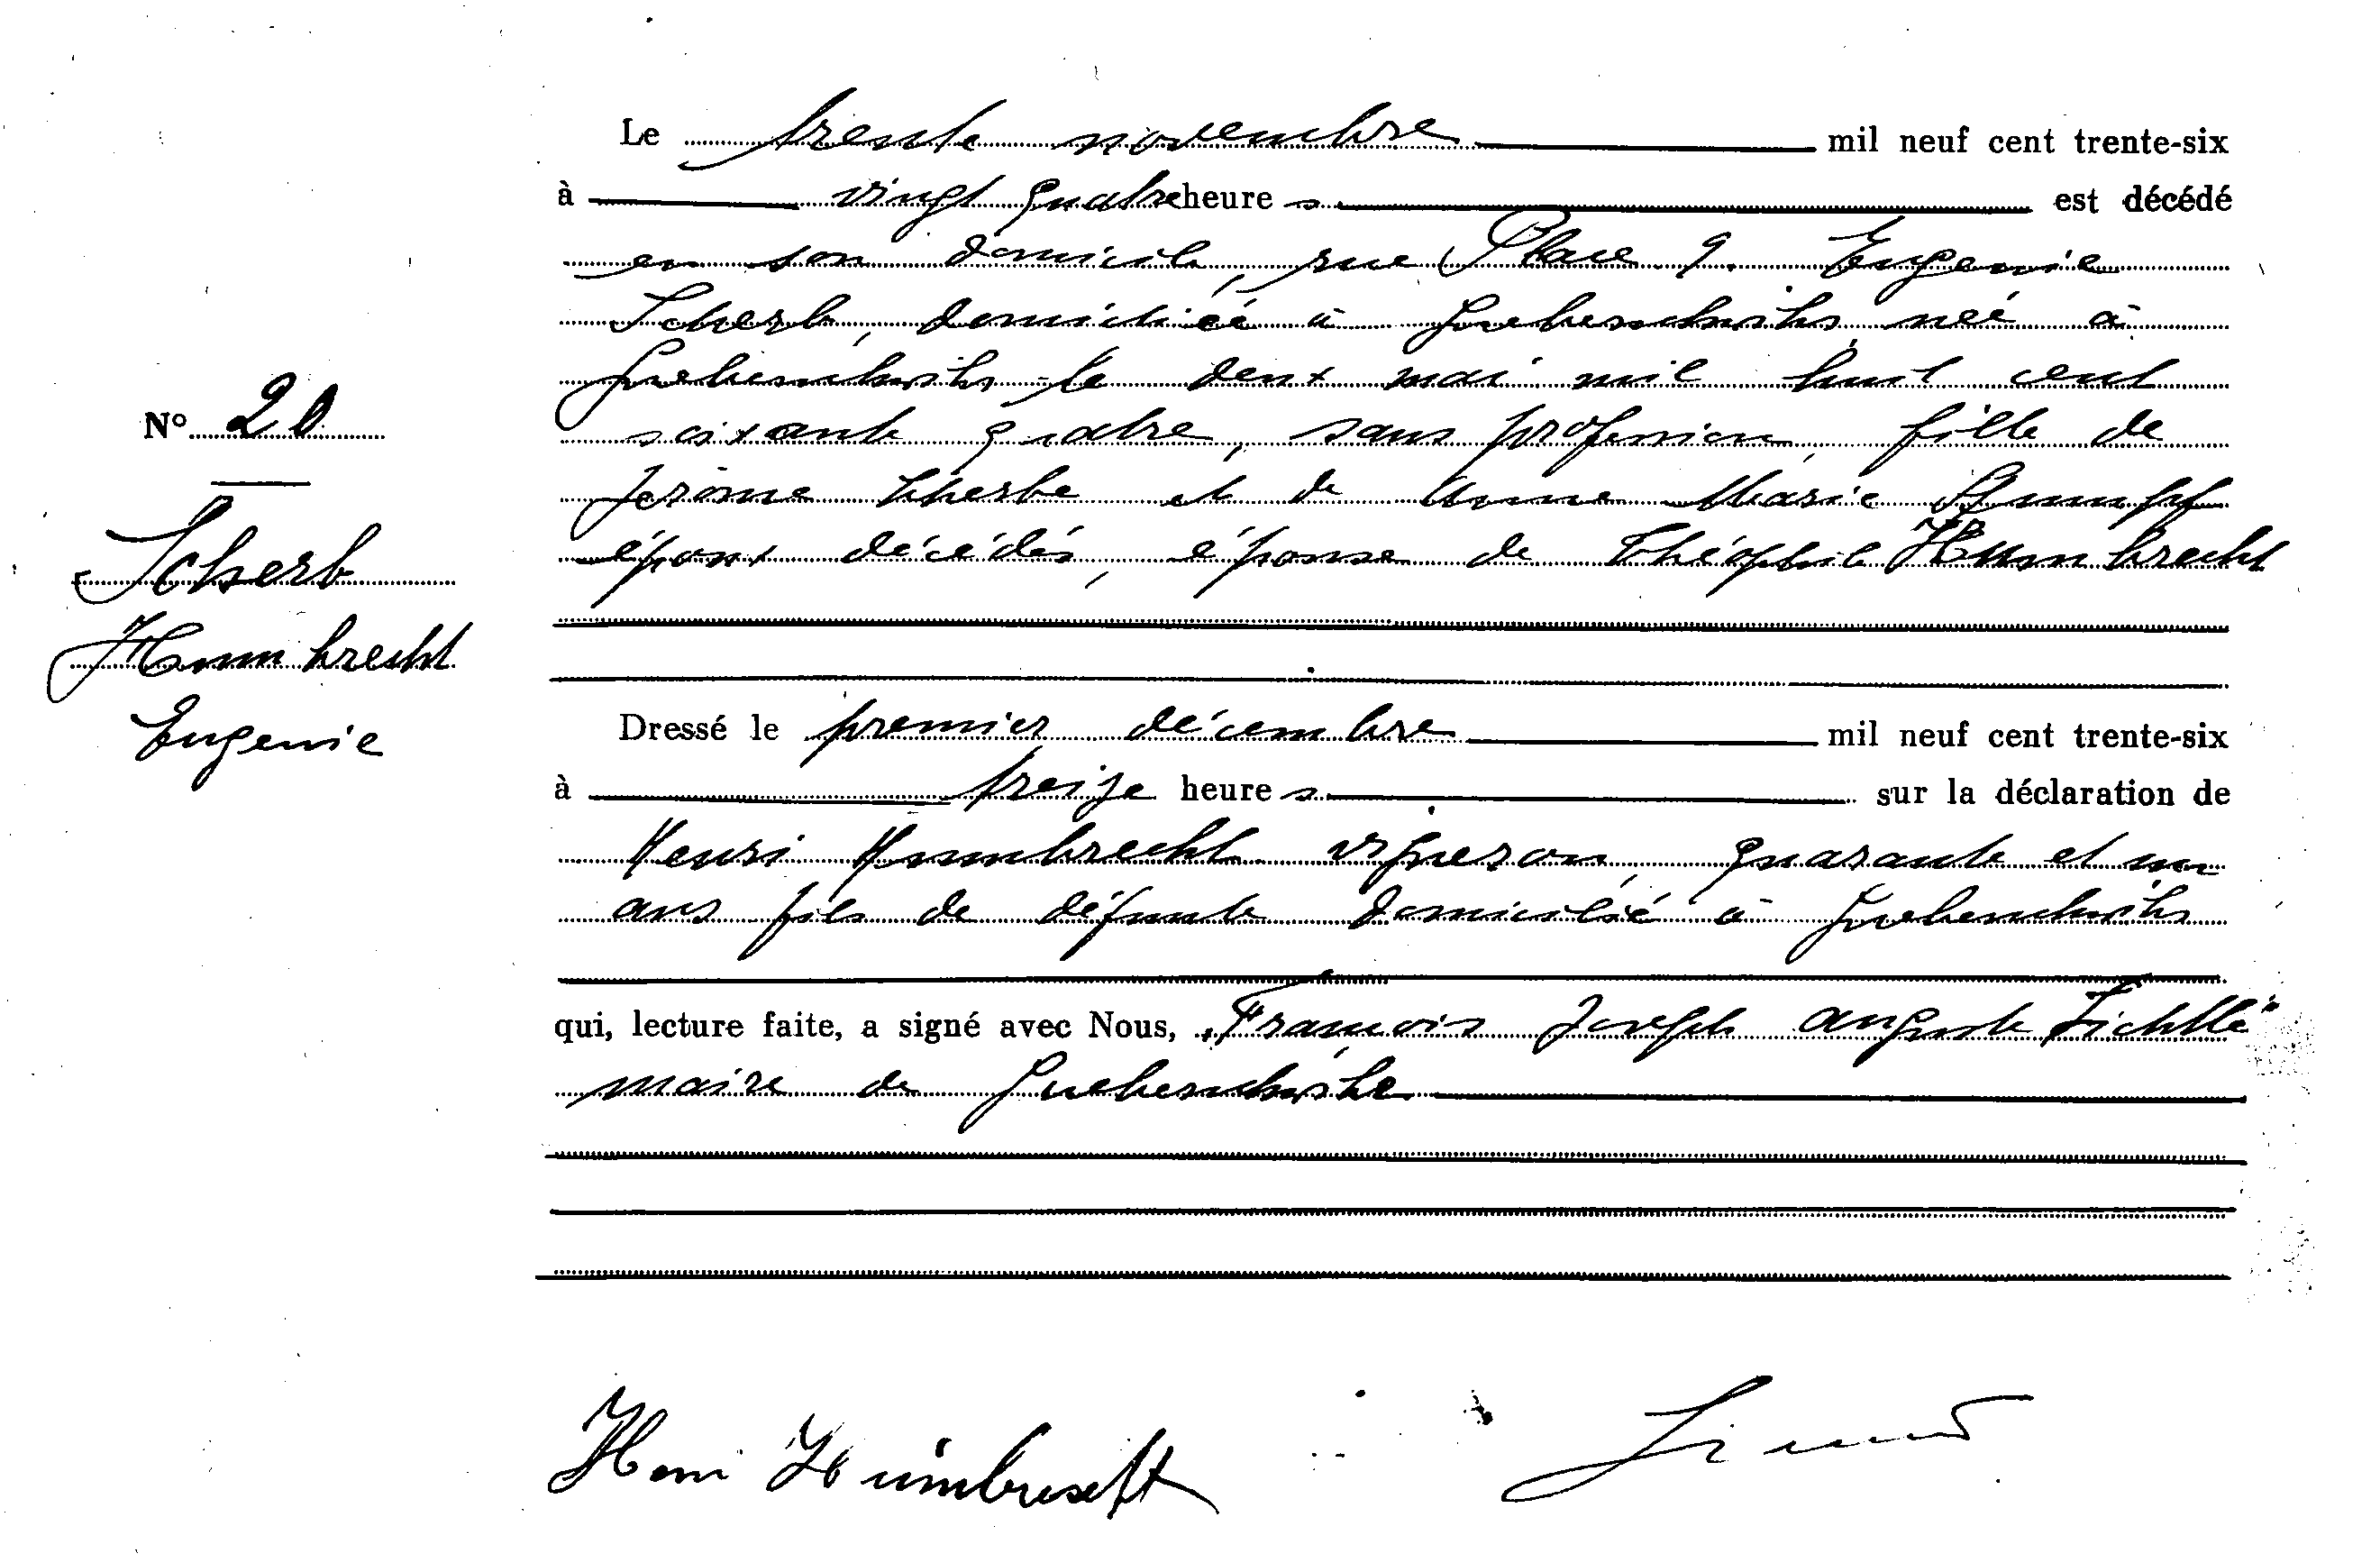 Le trente novembre mil neuf cent trente-six
à vingt quatre heures est décédé
en son domicile, rue Place 9. Eugenie
Scherb, domiciliée à Gueberschwihr, née à
Gueberschwihr le deux mai mil huit cent
N° 20
soixante quatre, sans profession, fille de
Jerome Scherbe et de Anne Marie Stumpf
époux décédés, épouse de Théophile Humbrecht
Scherb
Humbrecht
Eugenie
Dressé le premier décembre mil neuf cent trente-six
à treize heures sur la déclaration de
Henri Humbrecht vigneron, quarante et un
ans fils de défunte domicilié à Gueberschwihr
qui, lecture faite, a signé avec Nous, François Joseph auguste
maire de Gueberschwihr
Henri Humbrecht